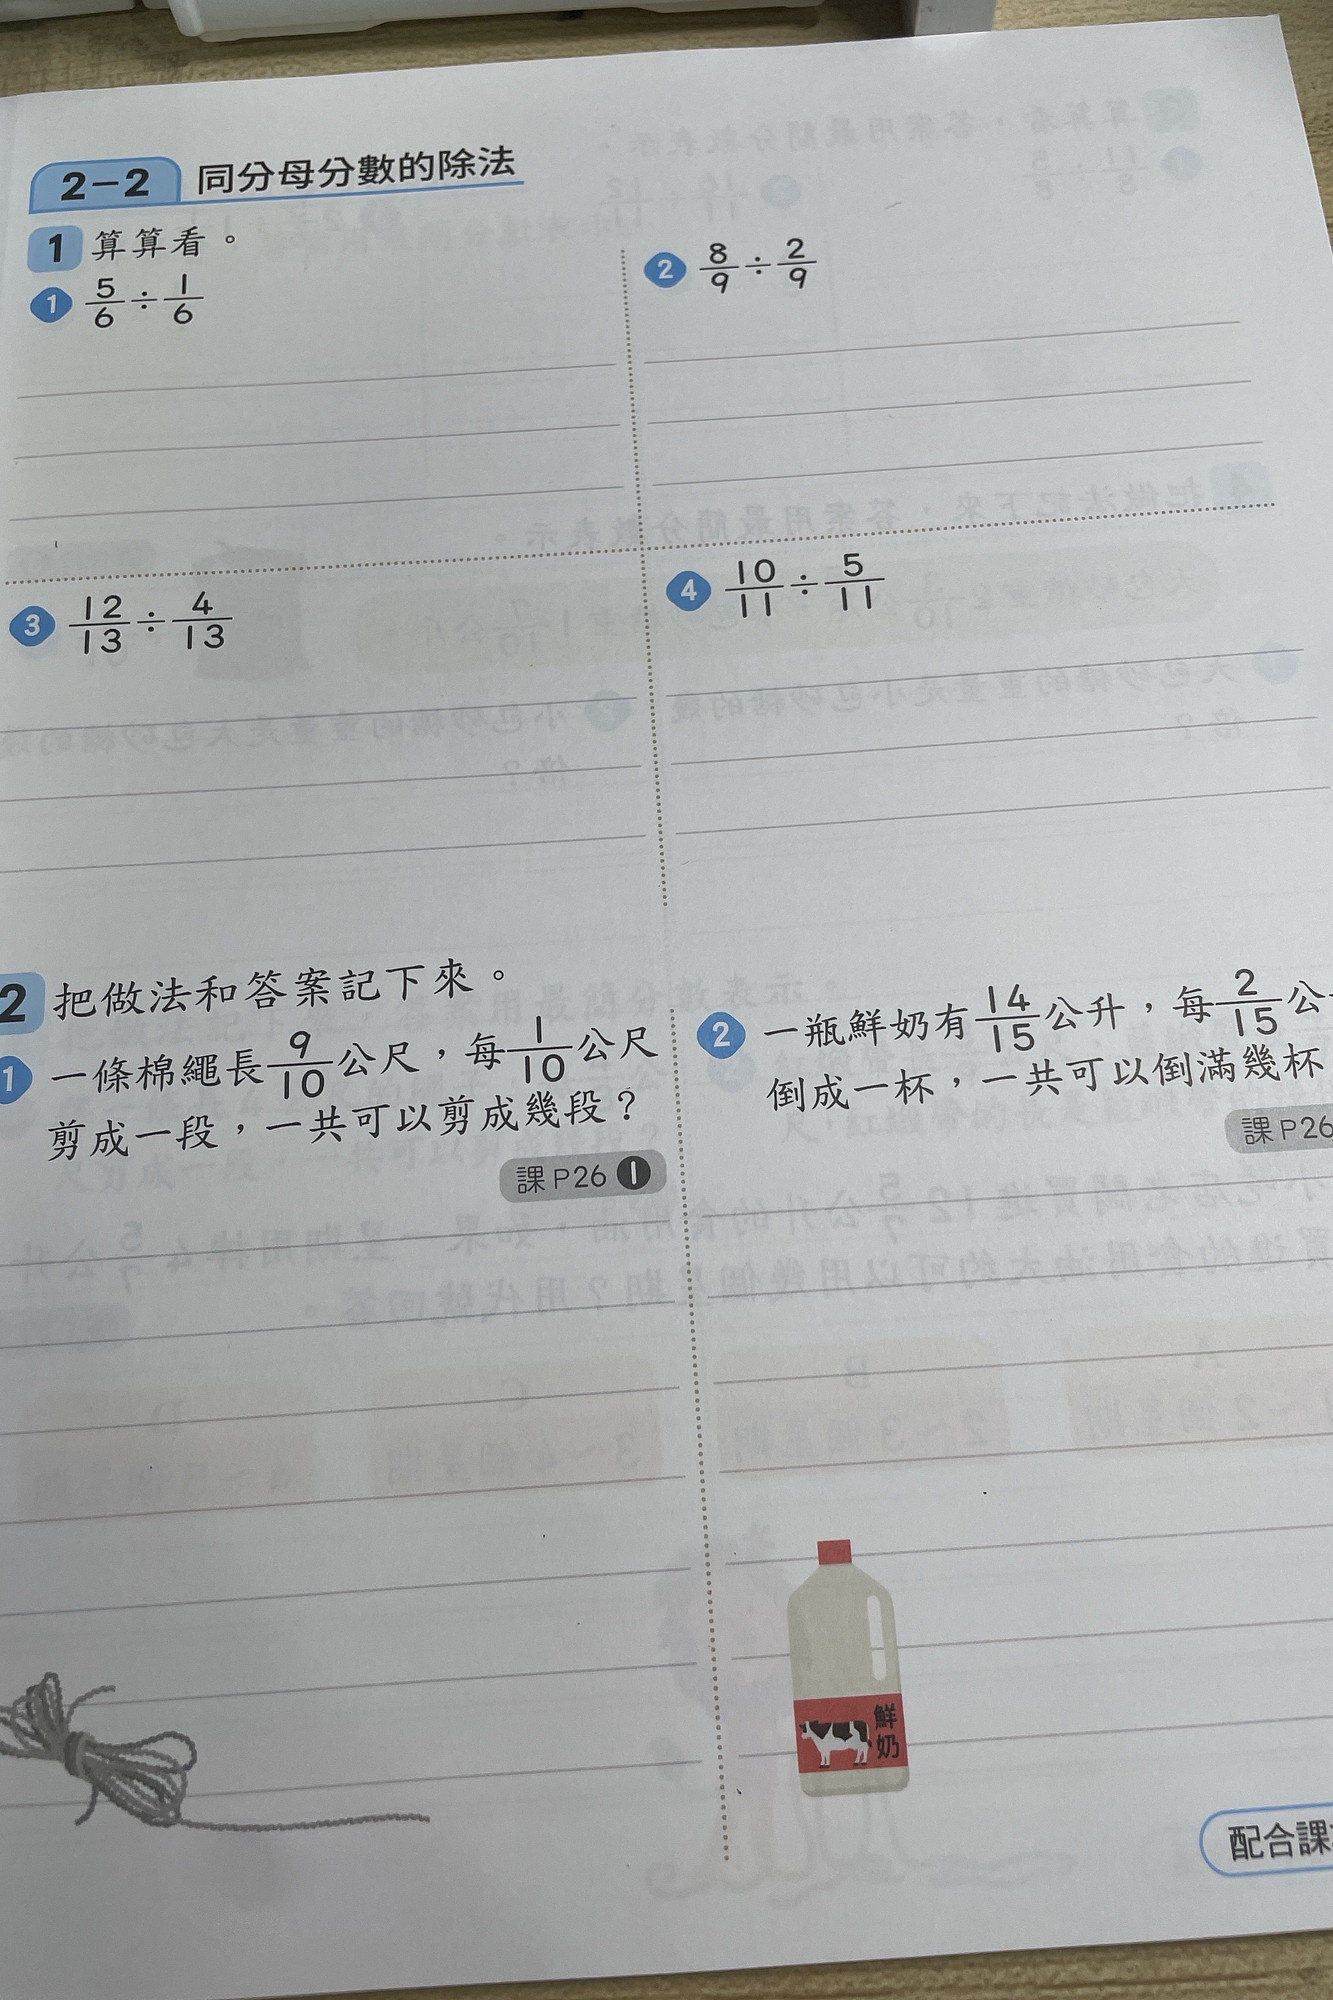 2-2 同分母分數的除法
1 算算看。
1 5/6 ÷ 1/6
2 8/9 ÷ 2/9
3 12/13 ÷ 4/13
4 10/11 ÷ 5/11
2 把做法和答案記下來。
1 一條棉繩長9/10公尺，每1/10公尺
剪成一段，一共可以剪成幾段？
課P26 1
2 一瓶鮮奶有14/15公升，每2/15公
倒成一杯，一共可以倒滿幾杯
課P26
鮮奶
配合課